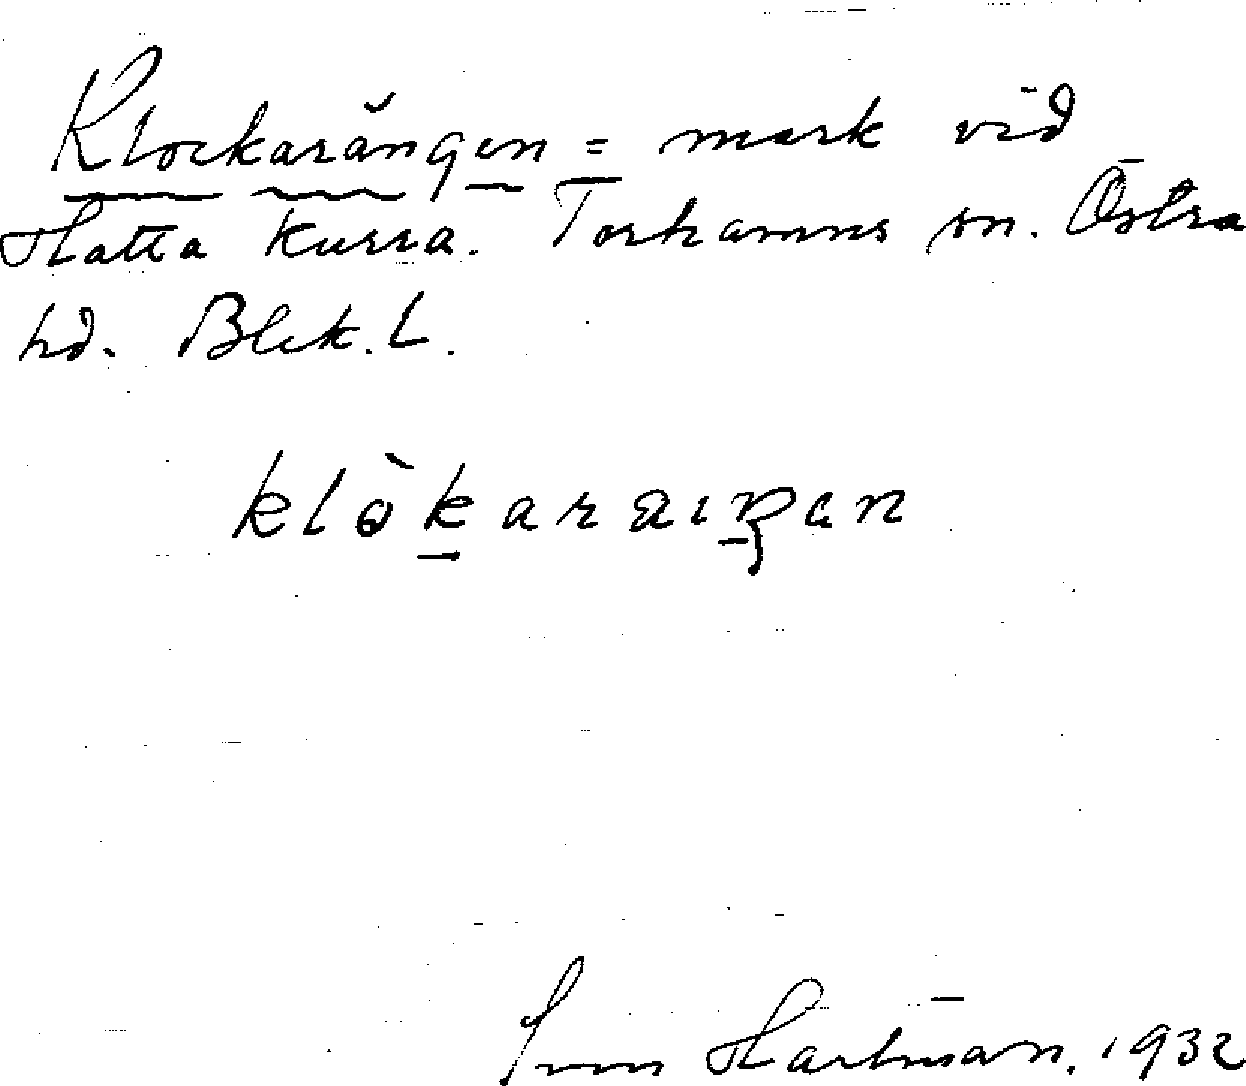 Klockarängen = mark vid
Hatta Kurra. Torhamns sn. Östra
hd. Blek. L.
klòkaraiŋen
Hartman. 1932